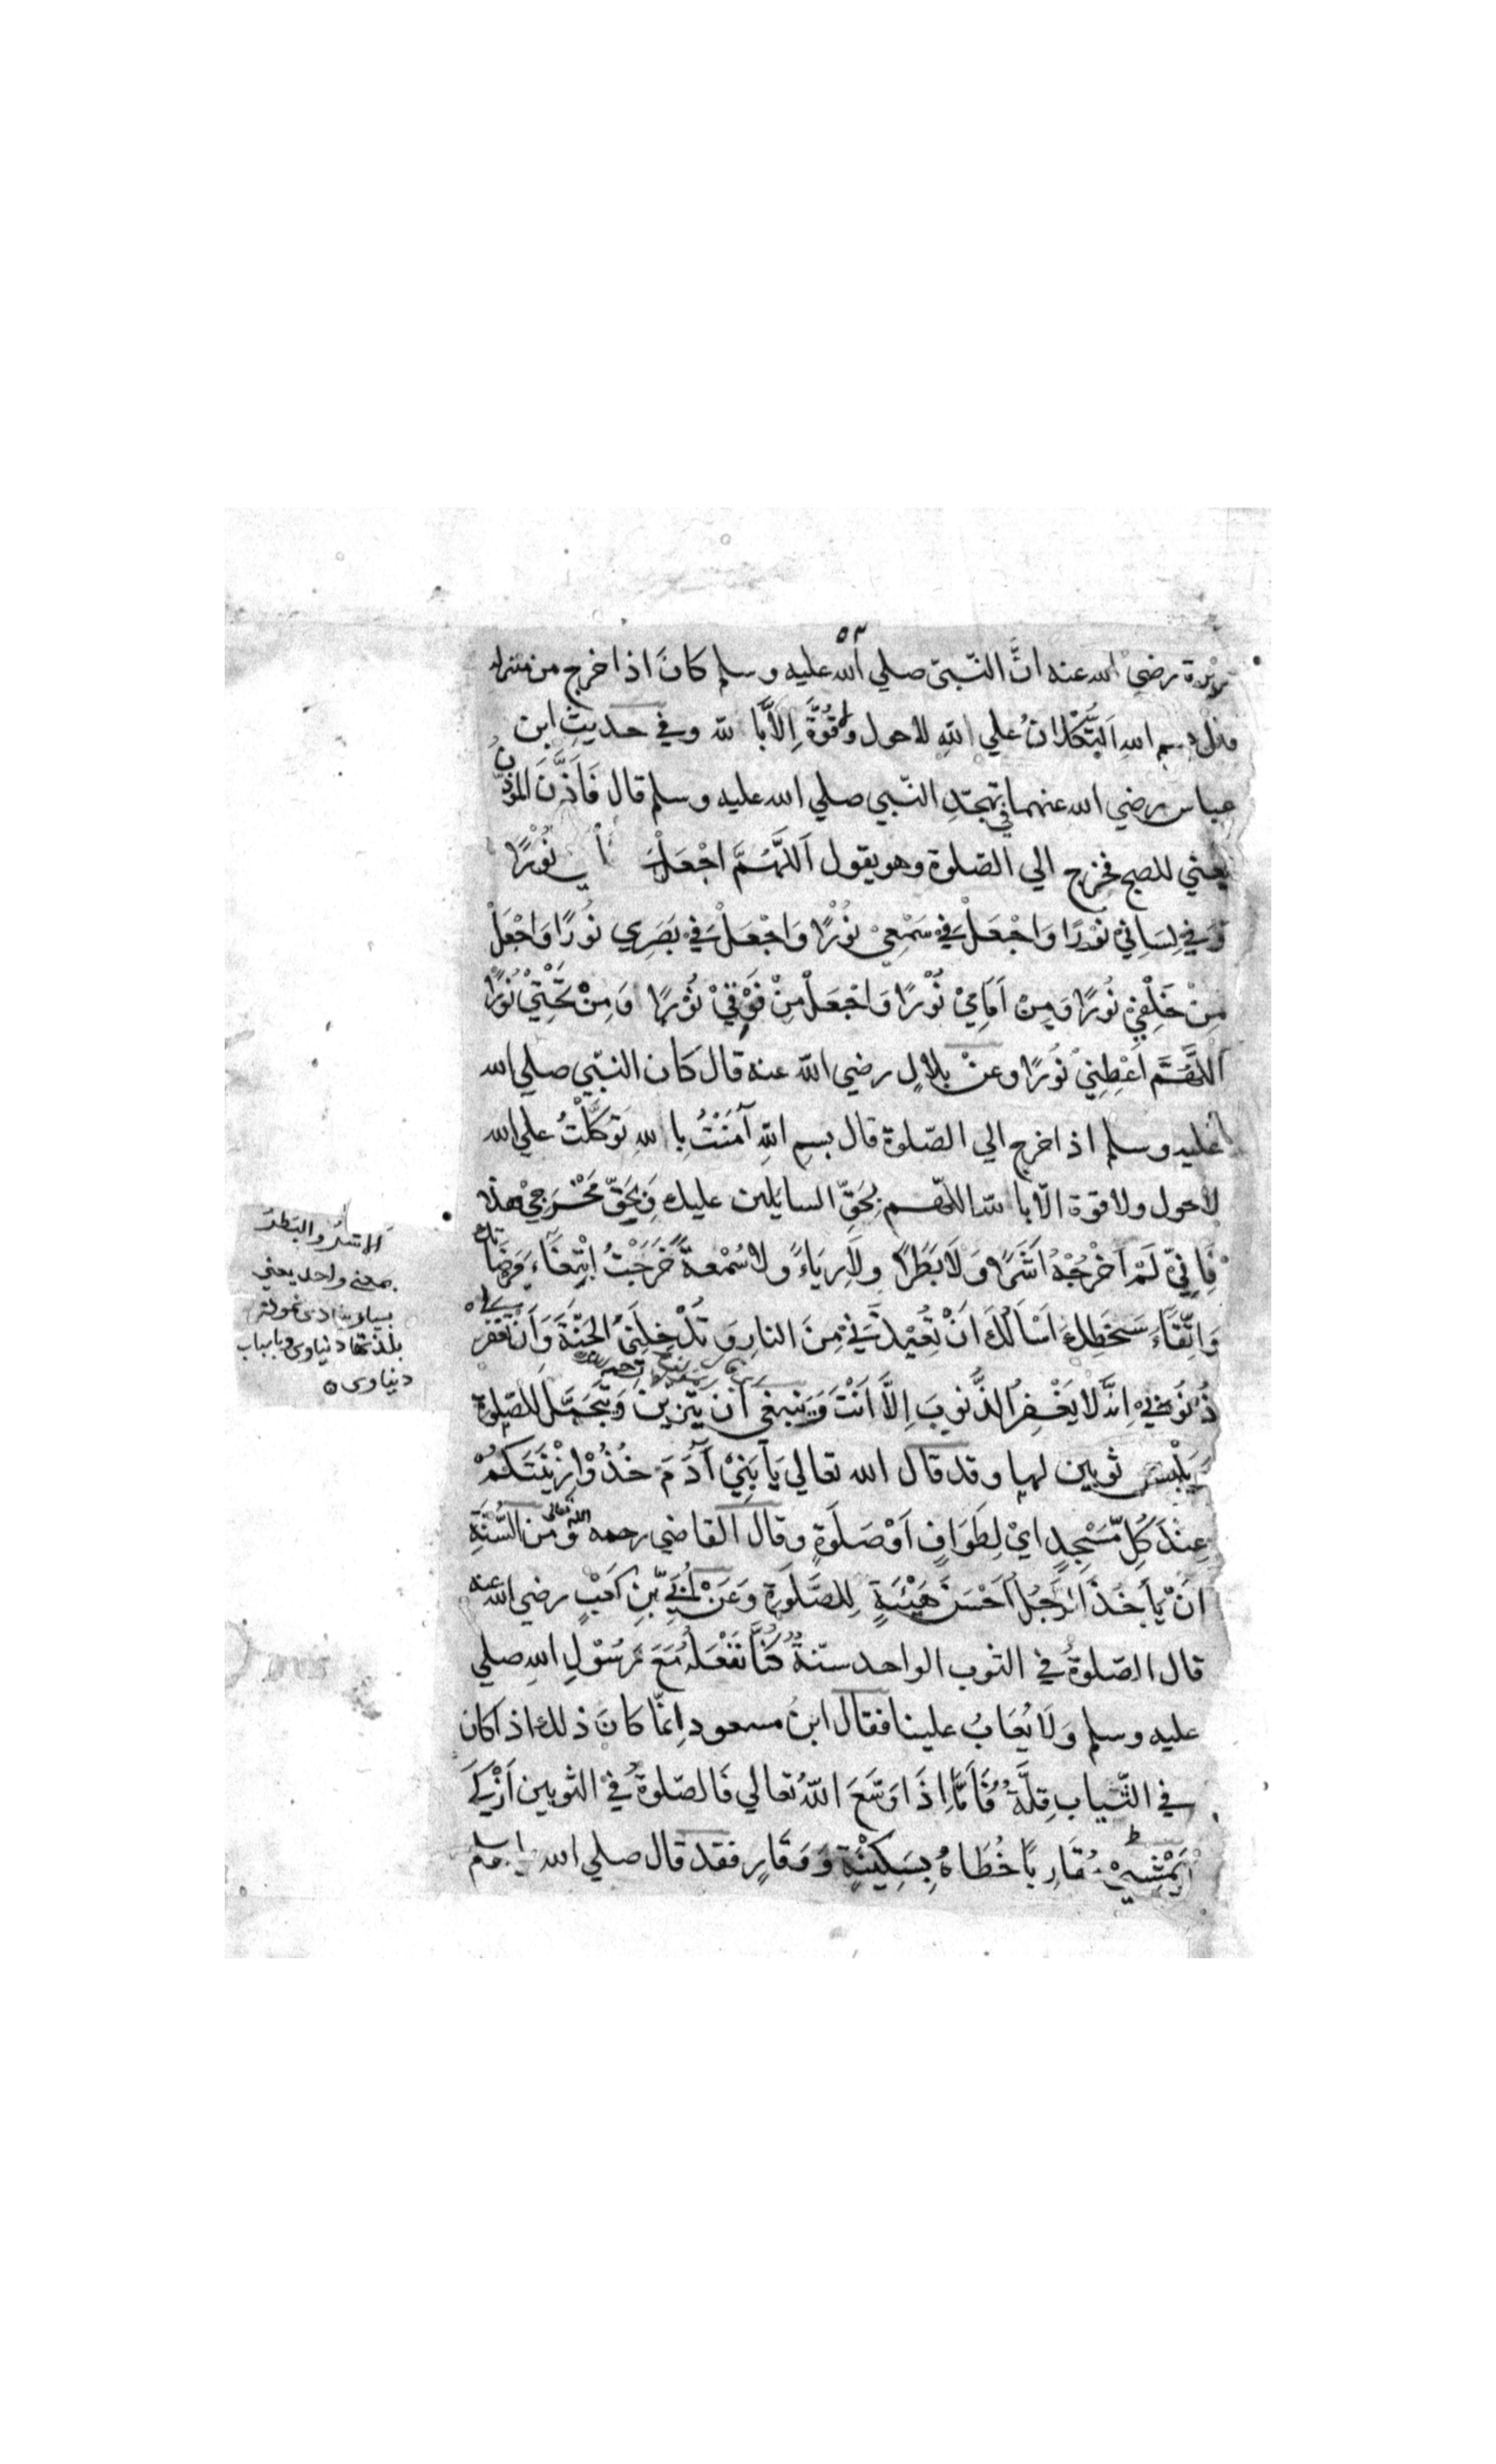 ٥٣
رضي الله عنه انّ النّبيّ صلي الله عليه وسلم كانَ اذا خرج من منزله
بسم اللهِ اَلتُّكْلَانُ علي اللهِ لاحول ولا قُوَّةَ اِلَّا بالله وفي حديثِ ابن
عباس رضي الله عنهما في تهجّدِ النّبي صلي الله عليه وسلم قال فَاَذَّنَ المؤذّن
يعني للصبح فخرج الي الصّلوة وهو يقول اَللّٰهُمَّ اجْعَلْ نُوْرًا
وَفِي لِسَانِيْ نُوْرًا وَاجْعَلْ فِي سَمْعِيْ نُوْرًا وَاجْعَلْ فِيْ بَصَرِي نُورًا وَاجْعَلْ
مِنْ خَلْفِيْ نُورًا وَمِنْ اَمَامِيْ نُوْرًا وَاجْعَلْ مِنْ فَوْقِيْ نُوْرًا وَمِنْ تَحْتِيْ نُوْرًا
اَللّٰهُمَّ اَعْطِنِيْ نُورًا وعنْ بلالٍ رضي الله عنه قال كان النبّي صلي الله
عليه وسلم اذا خرج الي الصّلوة قال بسمِ اللهِ آمَنْتُ بِاللهِ تَوَكَّلْتُ علي الله
لاحول ولا قوة الّا بالله اللّهم بِحَقِّ السايلين عليك وَبِحَقِّ مَخْرَجِيْ هذا
فَاِنِّيْ لَمْ اَخْرُجْهُ اَشَرًا وَلَا بَطَرًا وَلَا رِيَاءً ولا سُمْعةً خَرَجْتُ ابْتِغَاءَ مَرضَاتك
وَاتِّقَاءَ سَخَطِكَ اَسْاَلُكَ اَنْ تُعِيْذَنِيْ مِنَ النارِ وَ تُدْخِلَنِيْ الجَنَّةَ وَاَنْ تَغْفِرَ لِي
ذُنُوْبِيْ اِنَّهُ لَا يَغْفِرُ الذُّنوبَ اِلَّا اَنْتَ وَينبغي اَن يتزين وَيَتَجَمَّلَ للصّلوة
يَلْبس ثوبين لها وقد قال الله تعالي يَا بَنِيْ آدَمَ خُذُوْا زِيْنَتَكُمْ
عِنْدَ كُلِّ مَسْجِدٍ ايْ لِطَوَافٍ اَوْ صَلَوةٍ وقال القاضي رحمه الله تعالى وَمن السُّنَّةِ
اَنْ يَأخُذَ الرَّجُلُ اَحْسَنَ هَيْئَةٍ لِلصَّلَوةِ وَعَنْ اُبَيِّ بْنِ كَعْبٍ رضي الله عنه
قال الصّلوةُ في الثوب الواحد سنّةٌ كُنَّا نَفْعَلُهُ مَعَ رَسُوْلِ اللهِ صلي
عليه وسلم وَلَا يُعَابُ علينا فقال ابنُ مسعود اِنمّا كانَ ذلك اذا كان
في الثّيابِ قِلَّةٌ فَاَمَّا اِذَا وَسَّعَ اللهُ تعالي فَالصّلوةُ فيْ الثوبين اَزْكَى
يَمْشِيْ مُقَارِبًا خُطَاهُ بِسَكِيْنَةٍ وَوَقَارٍ فقد قال صلي الله
اَلاشَرُ والبَطَرُ
بمعنى واحد يعني
دنياوى